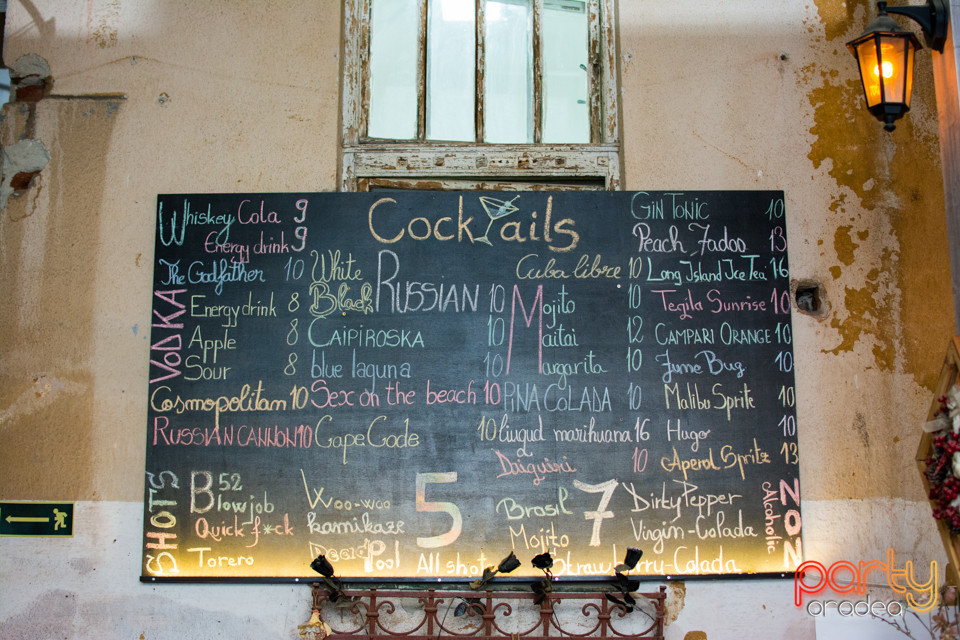 Cocktails
Whiskey Cola 9
Energy drink 9
The Godfather 10
VODKA
Energy drink 8
Apple 8
Sour 8
Cosmopolitan 10
Russian Cannon 10
White
Black
Russian 10
Caipiroska 10
blue laguna 10
Sex on the beach 10
Cape Code 10
Cuba libre 10
Mojito 10
Maitai 12
Margarita 10
Pina Colada 10
liugud marihuana 16
Daiguiri 10
Gin Tonic 10
Peach Fadoo 13
Long Island Ice Tea 16
Teqila Sunrise 10
Campari Orange 10
June Bug 10
Malibu Sprite 10
Hugo 10
Aperol Spritz 13
SHOTS
B52
Blowjob
Quick f*ck
Torero
Woo-woo
kamikaze
Dead Pool
5
All shot
Brasil
Mojito
7
Dirty Pepper
Virgin-Colada
Strawberry-Colada
NON
Alcoholic
party
oradea